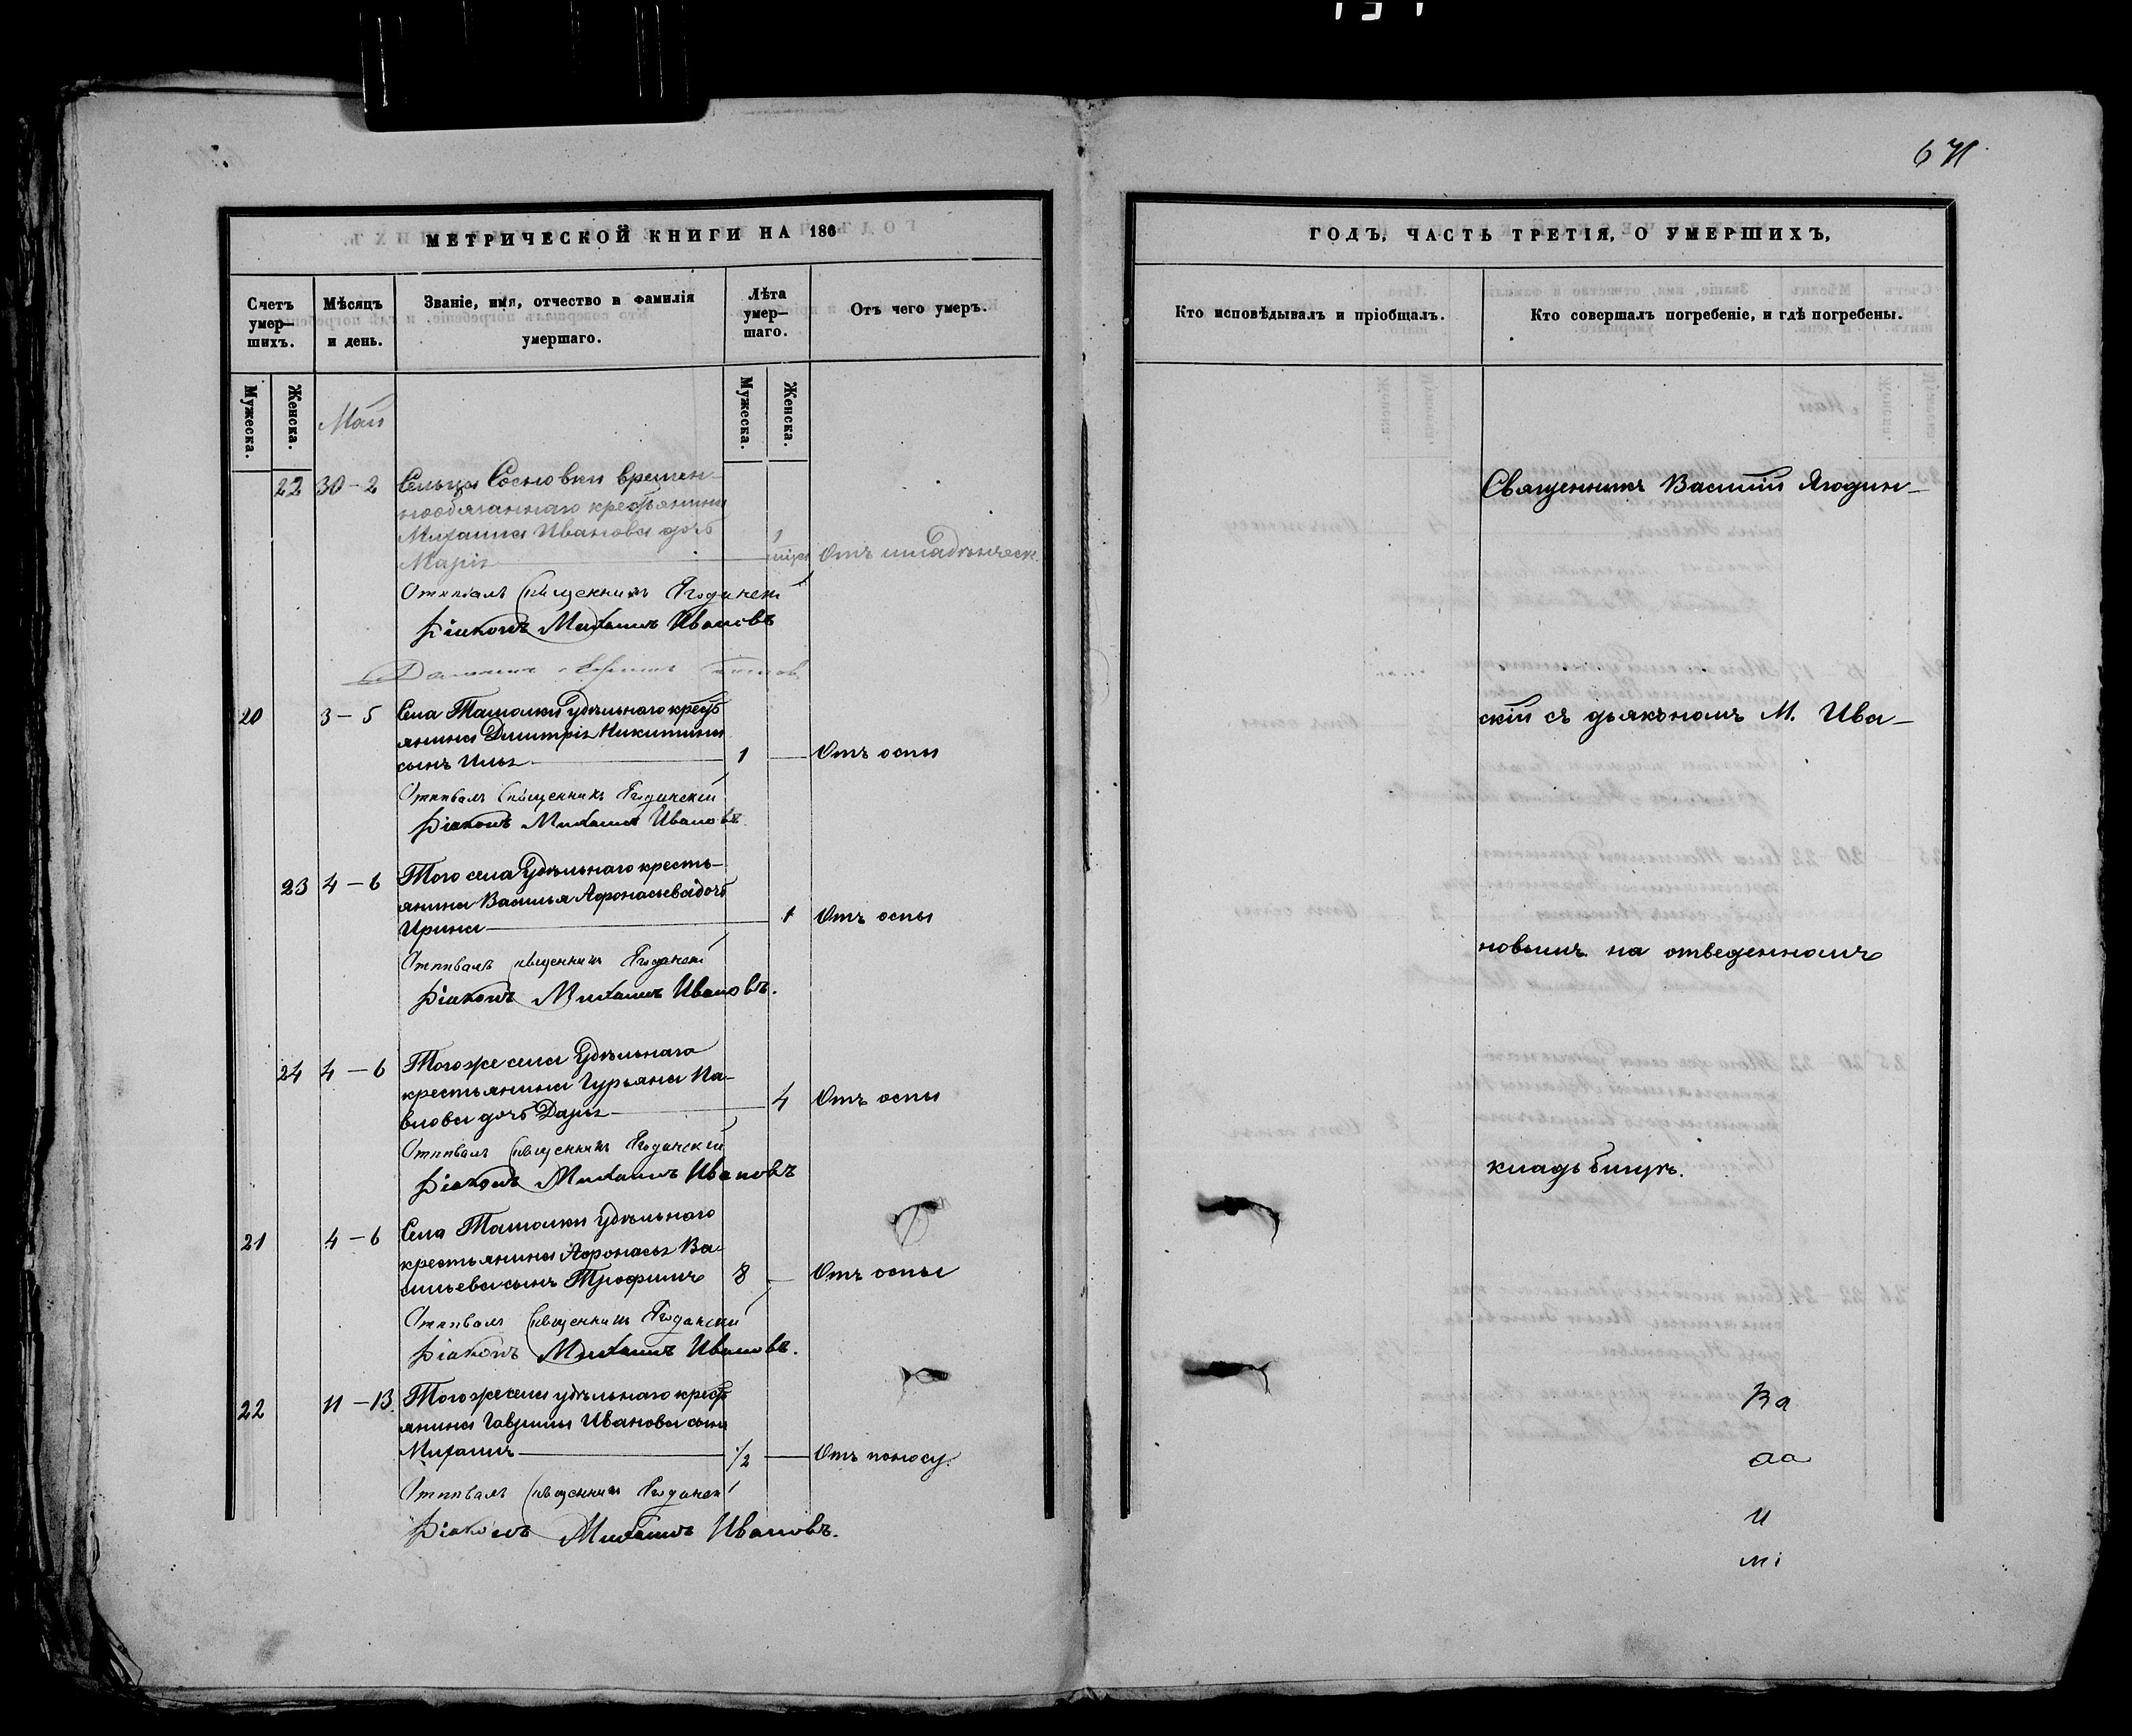 671
МЕТРИЧЕСКОЙ КНИГИ НА 186
Счетъ умер—шихъ.
Мѣсяцъ и день.
Званіе, имя, отчество и фамилія умершаго.
Лѣта умер—шаго.
Отъ чего умеръ.
Мужеска.
Женска.
Мужеска.
Женска.
Май
22 30-2 Сельца Сосновки времен-
нообязаннаго крестьянина
Михаила Иванова дочь 1
Марія мѣся Отъ младенческ.
Отпѣвалъ Священникъ Ягодинскій
Діаконъ Михаилъ Ивановъ
20 3-5 Села Ташолки удѣльнаго кресть
янина Димитрія Никитина
сынъ Илья 1 Отъ оспы
Отпѣвалъ Священникъ Ягодинскій
Діаконъ Михаилъ Ивановъ
23 4-6 Того села Удѣльнаго кресть-
янина Василья Афонасьева дочь
Ирина 1 Отъ оспы
Отпѣвалъ Священникъ Ягодинскій
Діаконъ Михаилъ Ивановъ.
24 4-6 Того же села Удѣльнаго
крестьянина Гурьяна Па-
влова дочь Дарья 4 Отъ оспы
Отпѣвалъ Священникъ Ягодинскій
Діаконъ Михаилъ Ивановъ
21 4-6 Села Ташолки удѣльнаго
крестьянина Афонасья Ва-
сильева сынъ Трофимъ 8 Отъ оспы
Отпѣвалъ Священникъ Ягодинскій
Діаконъ Михаилъ Ивановъ.
22 11-13. Того же села удѣльнаго кресть
янина Гаврилы Иванова сынъ
Михаилъ 1/2 Отъ поносу.
Отпѣвалъ Священникъ Ягодинскій
Діаконъ Михаилъ Ивановъ.
ГОДЪ, ЧАСТЬ ТРЕТІЯ, О УМЕРШИХЪ,
Кто исповѣдывалъ и пріобщалъ.
Кто совершалъ погребеніе, и гдѣ погребены.
Священникъ Василій Ягодин-
скій съ дьякономъ М. Ива-
новымъ на отведенномъ
кладьбищѣ.
Ва
аа
и
мі